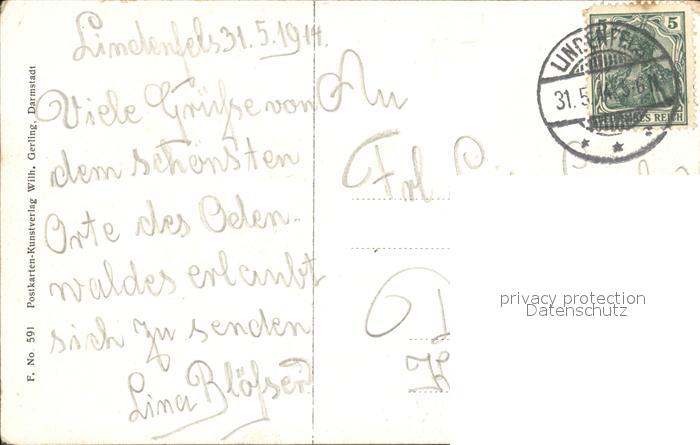 Lindenfels 31.5.1914.
Viele Grüße von
dem schönsten
Orte des Oden-
waldes erlaubt
sich zu senden
Lina
An
Frl
privacy protection
Datenschutz
LINDENFELS
31.5.14. 5-6
5
DEUTSCHES REICH
F. No 591 Postkarten-Kunstverlag Wilh. Gerling, Darmstadt